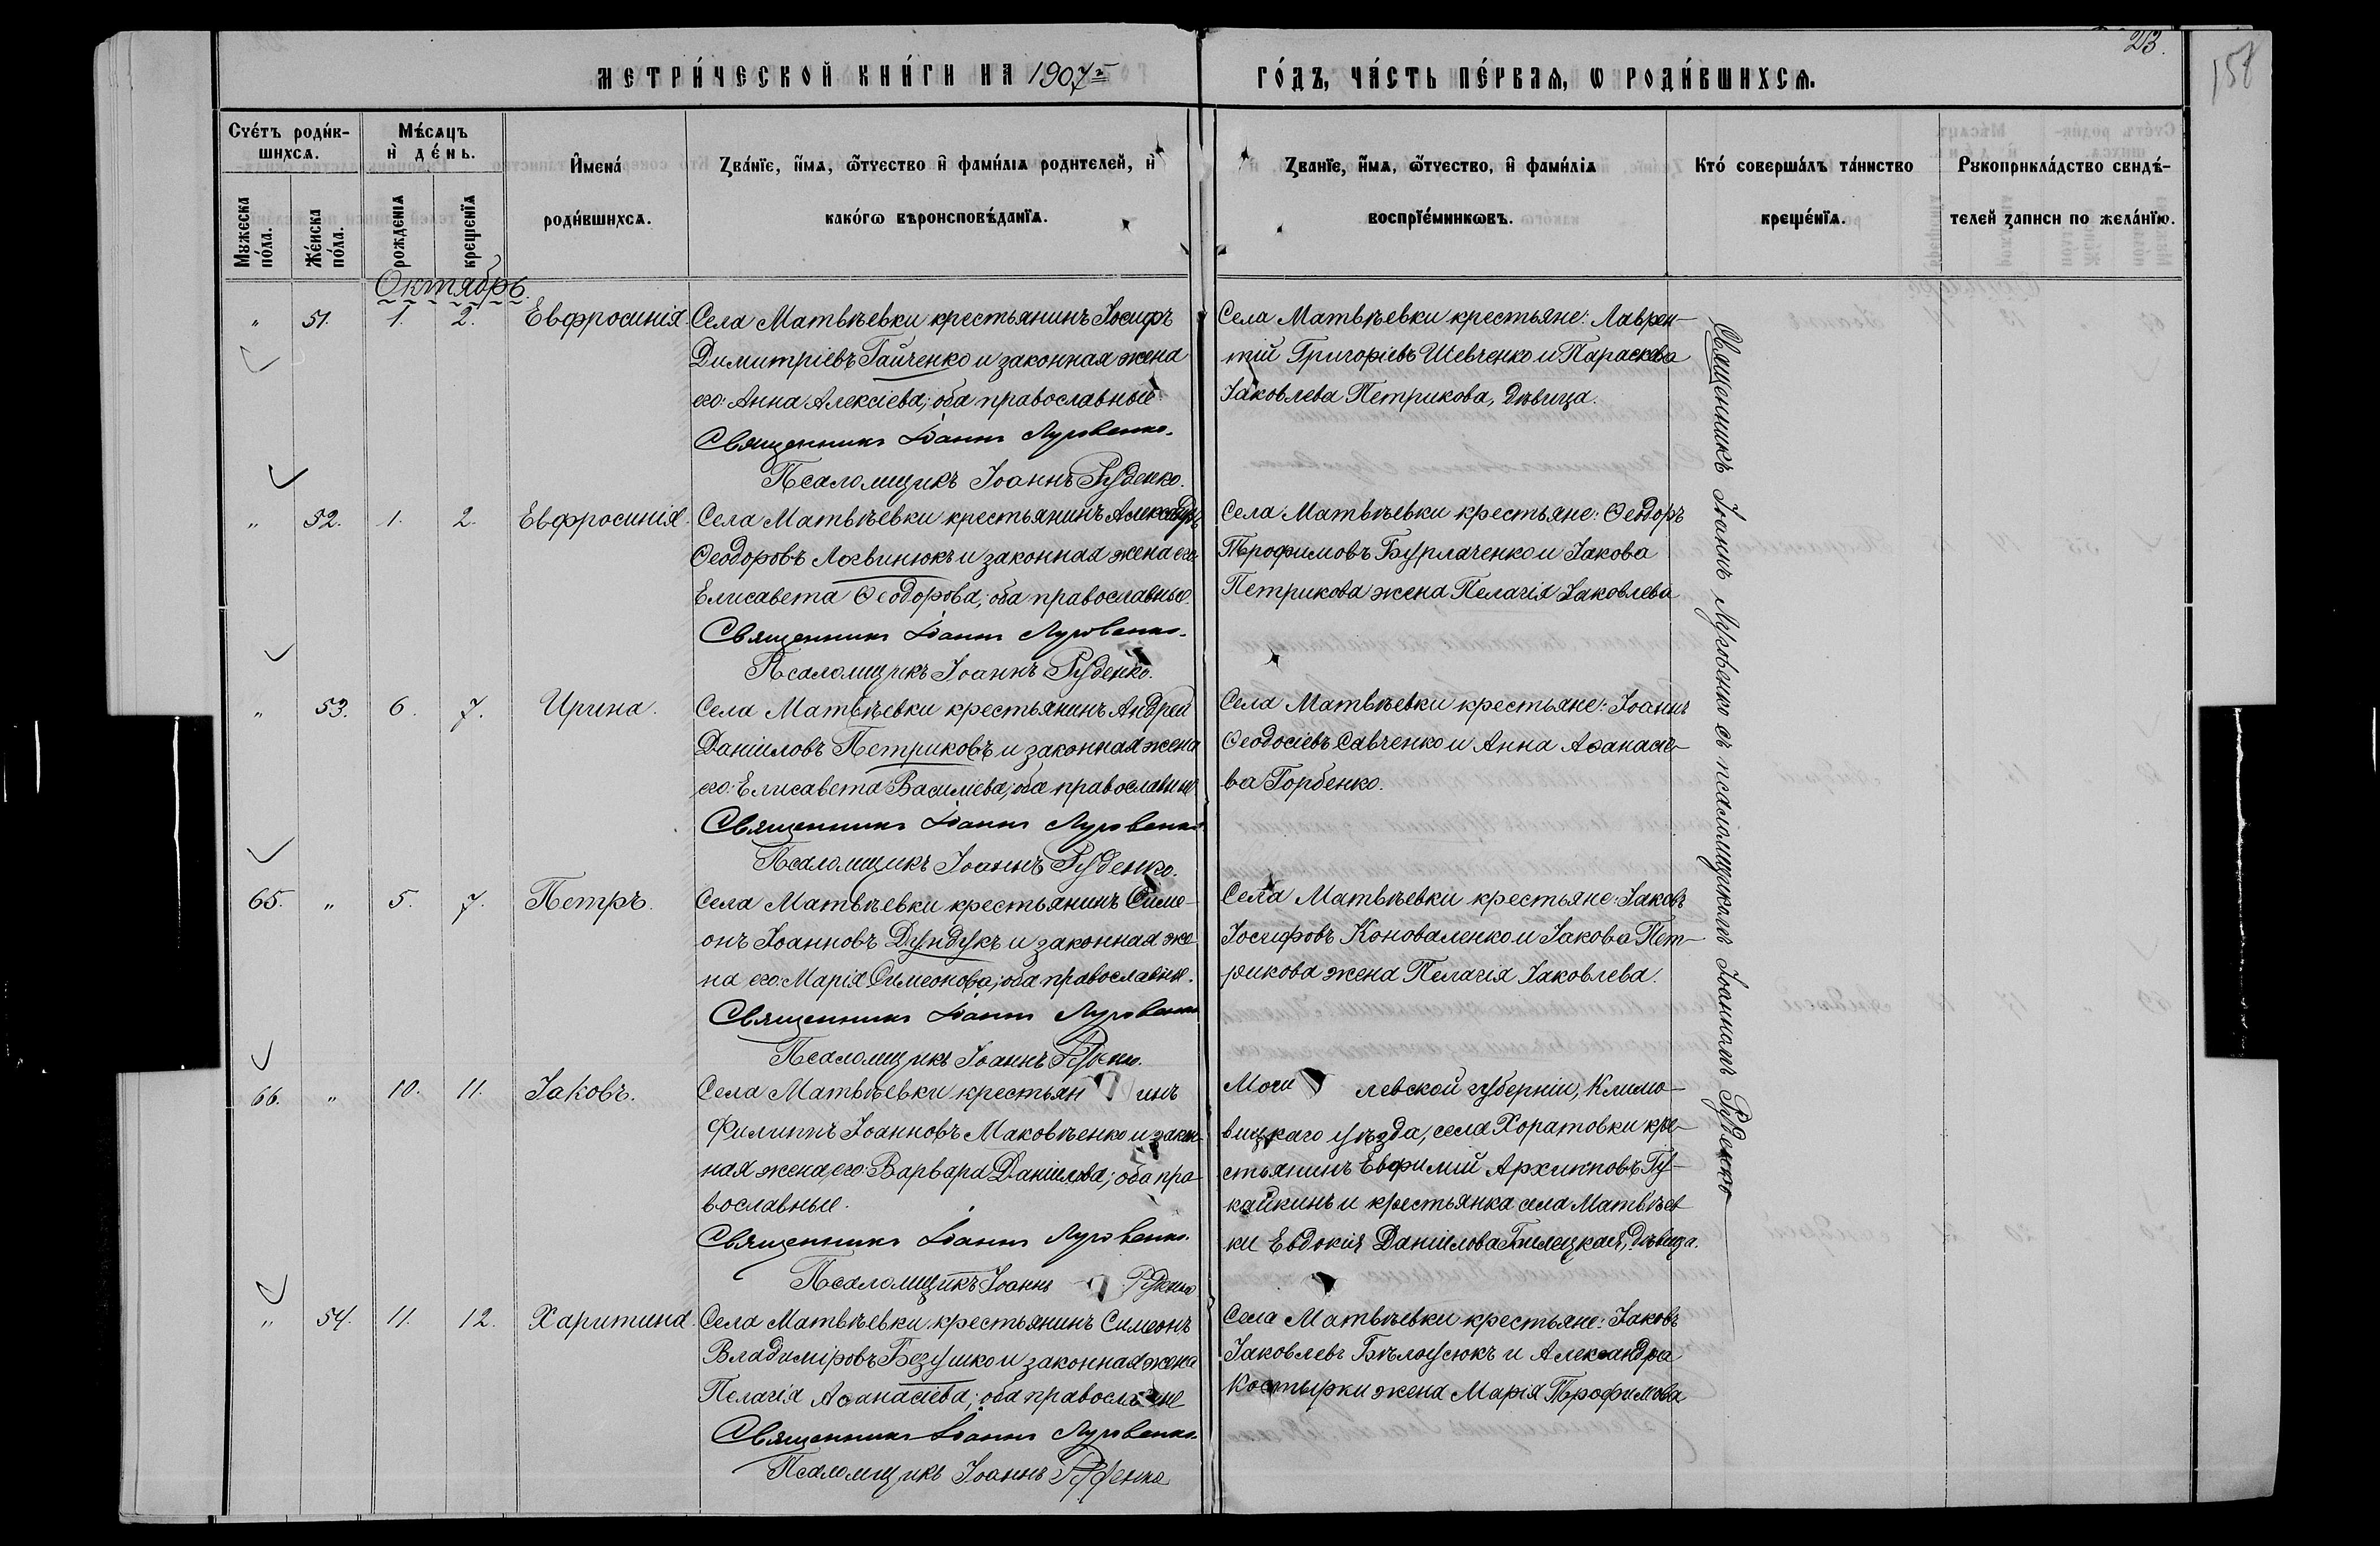 23.
158
МЕТРИ́ЧЕСКОЙ КНИ́ГИ НА 1907 г. ГО́ДЪ, ЧА́СТЬ ПЕ́РВАѦ, Ѡ РОДИ́ВШИХСѦ.
Счéтъ роди́в-
шихсѧ.
Мꙋжеска
по́ла.
Же́нска
по́ла.
Мѣ́сѧцъ
и҆ де́нь.
рожденіѧ
крещенїѧ
И҆мена́
роди́вшихсѧ.
Зва́нїе, и҆́мѧ, ѻ҆́тчество и҆ фами́лїѧ родителей, и҆
како́гѡ вѣроисповѣ́данїѧ.
Званїе, и҆́мѧ, ѻ҆́тчество, и҆ фами́лїѧ
воспрїе́мникѡвъ.
Кто́ соверша́лъ та́инство
креще́нїѧ.
Рꙋкоприкла́дство свидѣ́-
телей записи по жела́нїю.
Октябрь.
" 51. 1. 2. Евфросинія.
Села Матвѣевки крестьянинъ Іосифъ
Димитріевъ Гайченко и законная жена
его: Анна Алексіева; оба православные.
Священникъ Іоаннъ Луговенко.
Псаломщикъ Іоаннъ Руденко.
Села Матвѣевки крестьяне: Лаврен-
тій Григоріевъ Шевченко и Параскева
Іаковлева Петрикова, дѣвица.
Священникъ Іоаннъ Луговенко съ псаломщикомъ Іоанномъ Руденко
" 52. 1. 2. Евфросинія.
Села Матвѣевки крестьянинъ Александръ
Ѳеодоровъ Логвинюкъ и законная жена его
Елисавета Ѳеодорова; оба православные.
Священникъ Іоаннъ Луговенко.
Псаломщикъ Іоаннъ Руденко.
Села Матвѣевки крестьяне: Ѳеодоръ
Трофимовъ Бурлаченко и Іакова
Петрикова жена Пелагія Іаковлева
" 53. 6. 7. Ирина.
Села Матвѣевки крестьянинъ Андрей
Даніиловъ Петриковъ и законная жена
его: Елисавета Василіева; оба православные
Священникъ Іоаннъ Луговенко
Псаломщикъ Іоаннъ Руденко.
Села Матвѣевки крестьяне: Іоаннъ
Ѳеодосіевъ Савченко и Анна Аѳанасіе-
ва Горбенко.
65. " 5. 7. Петръ.
Села Матвѣевки крестьянинъ Симе-
онъ Іоанновъ Дундукъ и законная же-
на его: Марія Симеонова; оба православные.
Священникъ Іоаннъ Луговенко
Псаломщикъ Іоаннъ Руденко.
Села Матвѣевки крестьяне: Іаковъ
Іосифовъ Коноваленко и Іакова Пет-
рикова жена Пелагія Іаковлева.
66. " 10. 11. Іаковъ.
Села Матвѣевки крестьянинъ
Филиппъ Іоанновъ Маковѣенко и закон-
ная жена его: Варвара Даніилова; оба пра-
вославные.
Священникъ Іоаннъ Луговенко.
Псаломщикъ Іоаннъ Руденко
Могилевской губерніи, Климо-
вицкаго уѣзда, села Хоратовки кре-
стьянинъ Евфимій Архипповъ Гу-
кайкинъ и крестьянка села Матвѣев
ки Евдокія Даніилова Билецкая, дѣвица.
" 54. 11. 12. Харитина.
Села Матвѣевки крестьянинъ Симеонъ
Владиміровъ Безушко и законная жена
Пелагія Аѳанасіева; оба православные
Священникъ Іоаннъ Луговенко.
Псаломщикъ Іоаннъ Руденко
Села Матвѣевки крестьяне: Іаковъ
Іаковлевъ Бѣлоусюкъ и Александра
Костырки жена Марія Трофимова